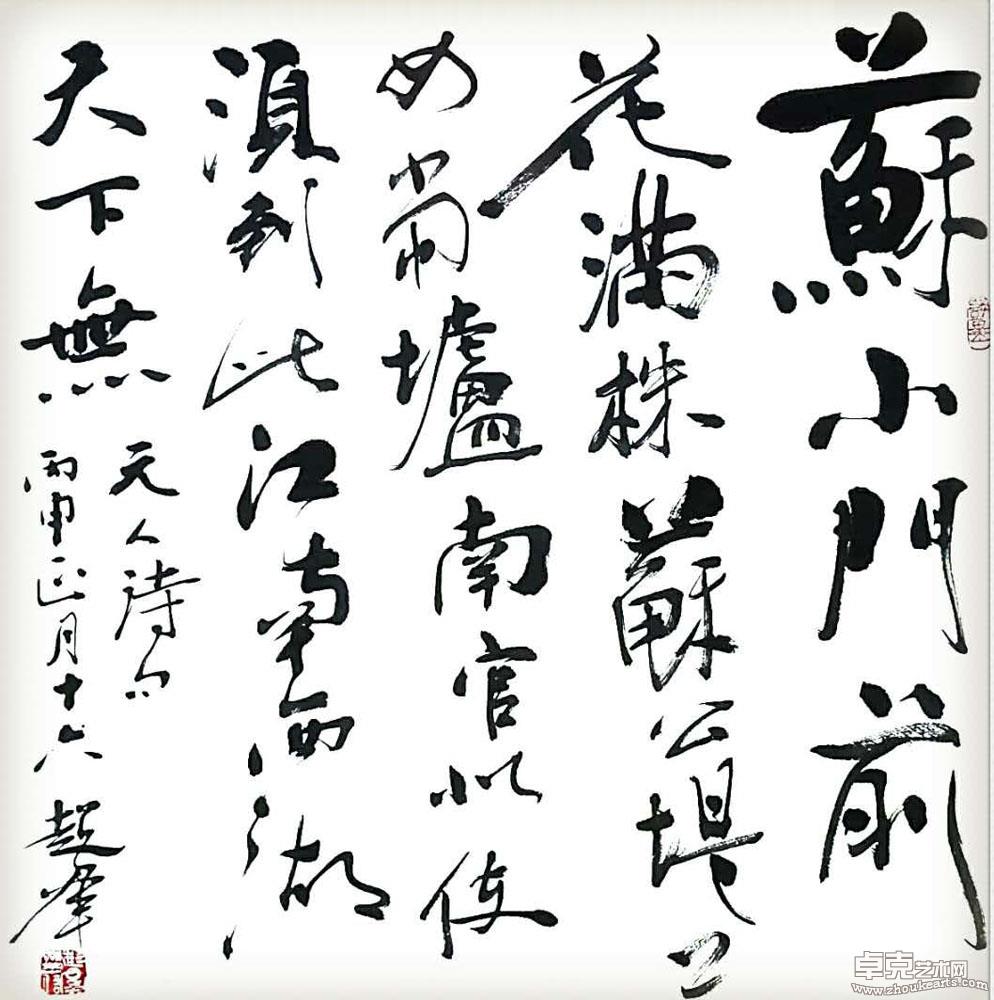 蘇小門前
花滿株蘇公堤上
女當壚南官北使
須到此江南西湖
天下無
元人詩句
丙申正月十六
卓克艺术网
www.zhoukearts.com